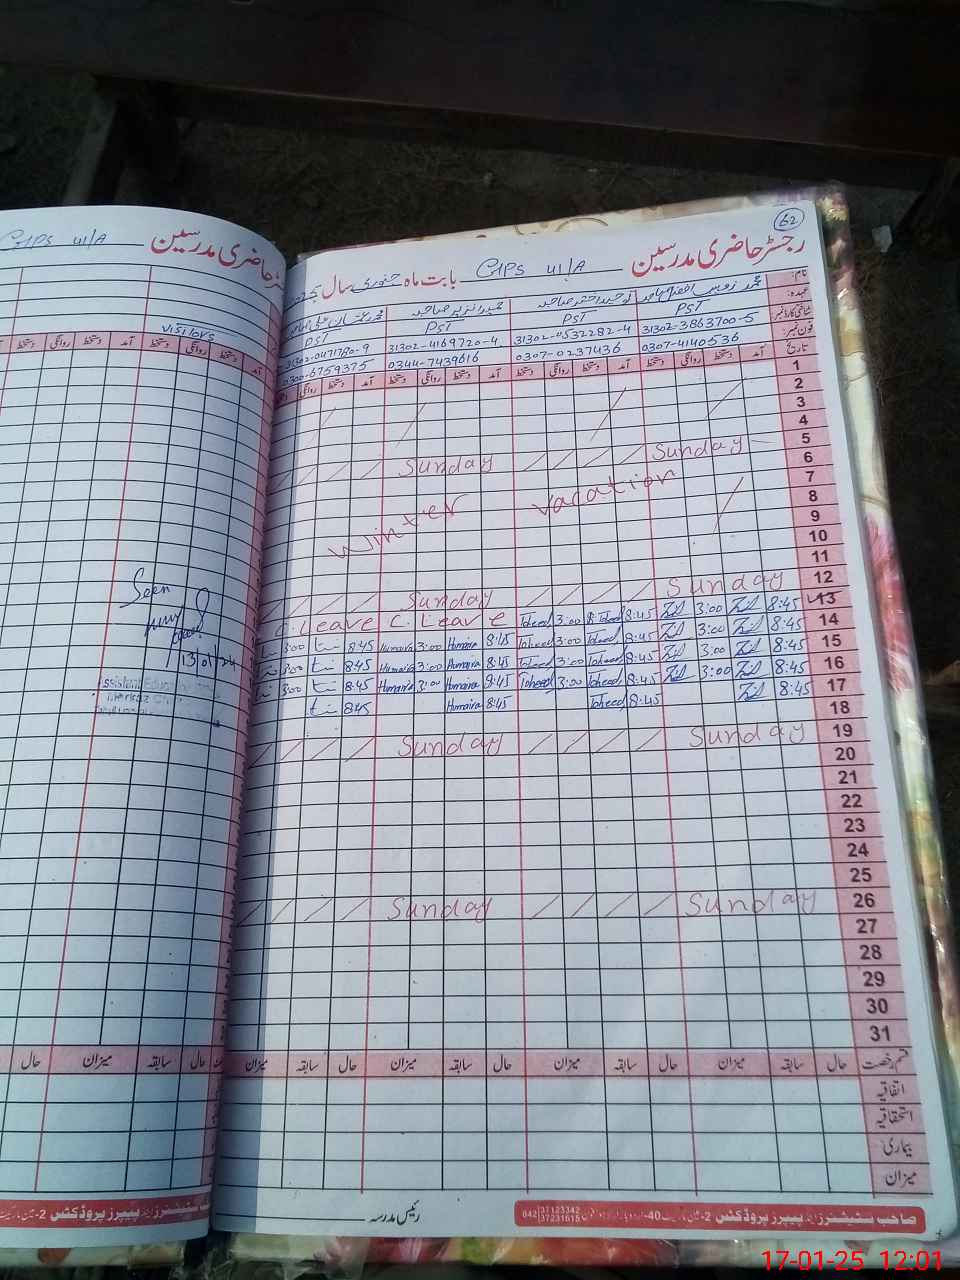 62
رجسٹر حاضری مدرسین
GPS 41/A
بابت ماہ جنوری سال
نام:
عہدہ:
PST
PST
PST
PST
شناختی کارڈ نمبر
31302-3863700-5
31302-0532282-4
31302-4169720-4
31302-0471780-9
فون نمبر:
0307-4140536
0307-0237436
0344-7439616
0300-6759375
تاریخ
آمد دستخط روانگی دستخط آمد دستخط روانگی دستخط آمد دستخط روانگی دستخط آمد دستخط روانگی دستخط
1
2
3
4
5 Sunday Sunday
6
7
8
Winter Vacation
9
10
11
12 Sunday Sunday
13 8:45 3:00 8:45 Toheed 3:00 Toheed C. Leave C. Leave
14 8:45 3:00 8:45 Toheed 3:00 Toheed 8:45 Humaira 3:00 Humaira 8:45 3:00
15 8:45 3:00 8:45 Toheed 3:00 Toheed 8:45 Humaira 3:00 Humaira 8:45
16 8:45 3:00 8:45 Toheed 3:00 Toheed 8:45 Humaira 3:00 Humaira 8:45 3:00
17 8:45 8:45 Toheed 8:45 Humaira 8:45
18
19 Sunday Sunday
20
21
22
23
24
25
26 Sunday Sunday
27
28
29
30
31
قسم رخصت حال سابقہ میزان حال سابقہ میزان حال سابقہ میزان حال سابقہ میزان
اتفاقیہ
استحقاقیہ
بیماری
میزان
رئیس مدرسہ
صاحب سٹیشنرز اینڈ پیپرز پروڈکٹس
042 37123342
37231615
حاضری مدرسین
GPS 41/A
Visitors
آمد دستخط روانگی دستخط آمد دستخط روانگی دستخط
Seen
13/01/24
حال سابقہ میزان حال
صاحب سٹیشنرز اینڈ پیپرز پروڈکٹس
17-01-25 12:01